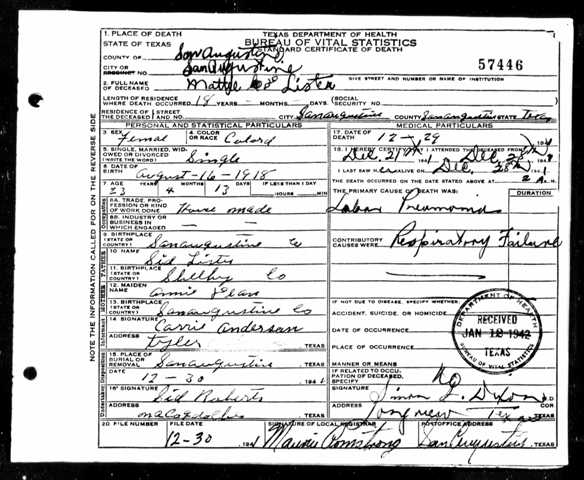 TEXAS DEPARTMENT OF HEALTH
BUREAU OF VITAL STATISTICS
STANDARD CERTIFICATE OF DEATH
57446
1. PLACE OF DEATH
STATE OF TEXAS
COUNTY OF San Augustine
CITY OR PRECINCT NO. San Augustine
GIVE STREET AND NUMBER OR NAME OF INSTITUTION
2 FULL NAME OF DECEASED Lister
LENGTH OF RESIDENCE WHERE DEATH OCCURRED 18 YEARS MONTHS DAYS
SOCIAL SECURITY NO.
RESIDENCE OF THE DECEASED STREET AND NO. CITY San augustine COUNTY San augustine STATE Texas
PERSONAL AND STATISTICAL PARTICULARS
MEDICAL PARTICULARS
3 SEX Femal
4 COLOR OR RACE Colord
17 DATE OF DEATH 12-29
5 SINGLE, MARRIED, WIDOWED OR DIVORCED (WRITE THE WORD) Single
18. I HEREBY CERTIFY THAT I ATTENDED THE DECEASED FROM
6 DATE OF BIRTH august-16-1918
7 AGE 23 YEARS 4 MONTHS 13 DAYS IF LESS THAN 1 DAY HOURS MIN.
THE DEATH OCCURRED ON THE DATE STATED ABOVE AT
THE PRIMARY CAUSE OF DEATH WAS:
DURATION
8A. TRADE, PROFESSION OR KIND OF WORK DONE House made
Lobar Pneumonia
8B. INDUSTRY OR BUSINESS IN WHICH ENGAGED
CONTRIBUTORY CAUSES WERE Respiratory Failure
9 BIRTHPLACE (STATE OR COUNTY) San augustine Co
10 NAME Sid Lister
11. BIRTHPLACE (STATE OR COUNTY) Shelby Co
12. MAIDEN NAME annie
13. BIRTHPLACE (STATE OR COUNTY) San augustine Co
IF NOT DUE TO DISEASE, SPECIFY WHETHER:
ACCIDENT, SUICIDE, OR HOMICIDE
DATE OF OCCURRENCE
14 SIGNATURE Carrie Anderson
ADDRESS Tyler TEXAS
PLACE OF OCCURRENCE
DEPARTMENT OF HEALTH
RECEIVED
JAN 12 1942
TEXAS
BUREAU OF VITAL STATISTICS
15. PLACE OF BURIAL OR REMOVAL San augustine TEXAS
MANNER OR MEANS
DATE 12-30 194
IF RELATED TO OCCUPATION OF DECEASED, SPECIFY No
16 SIGNATURE Sid Roberts
SIGNATURE Simon L. Dixon M.D.
ADDRESS TEXAS
ADDRESS Longview Texas
20 FILE NUMBER
FILE DATE 12-30 194
SIGNATURE OF LOCAL REGISTRAR Armstrong
POSTOFFICE ADDRESS San Augustine TEXAS
NOTE THE INFORMATION CALLED FOR ON THE REVERSE SIDE